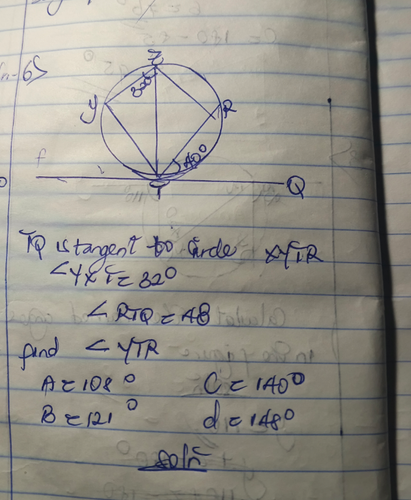 6>
Z
32°
Y
R
40°
f
T
Q
TQ is tangent to Circle XYTR
∠YXT = 32°
∠RTQ = 48
find ∠YTR
A = 108° C = 140°
B = 121° d = 148°
soln